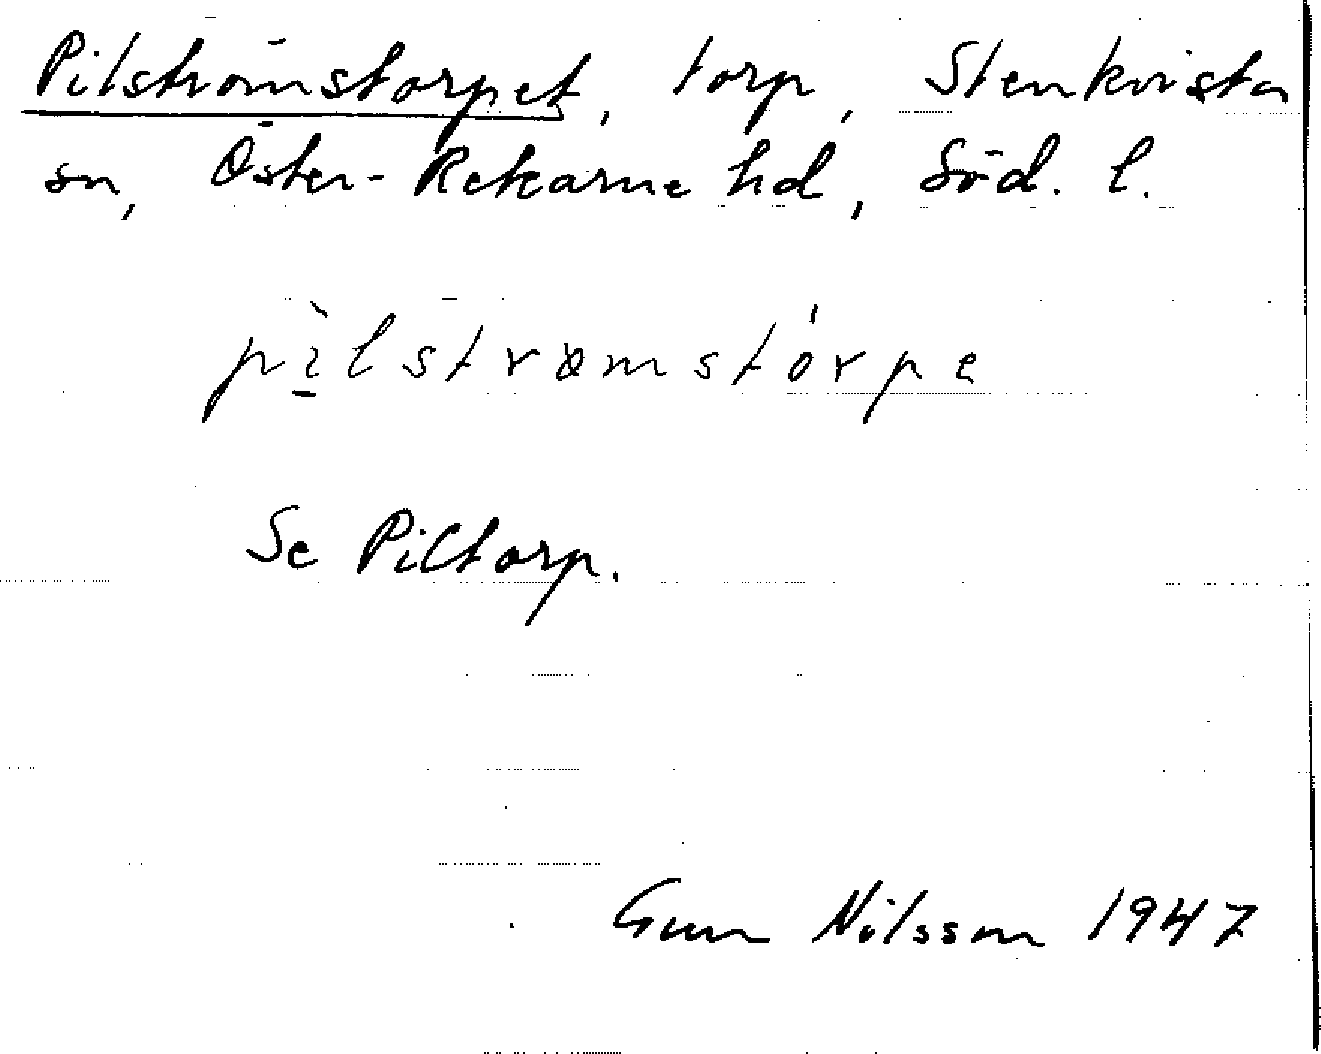 Pilströmstorpet, torp, Stenkvista
sn, Öster-Rekarne hd, Söd. l.
pì̠lstrømstórpe
Se Piltorp.
Gun Nilsson 1947